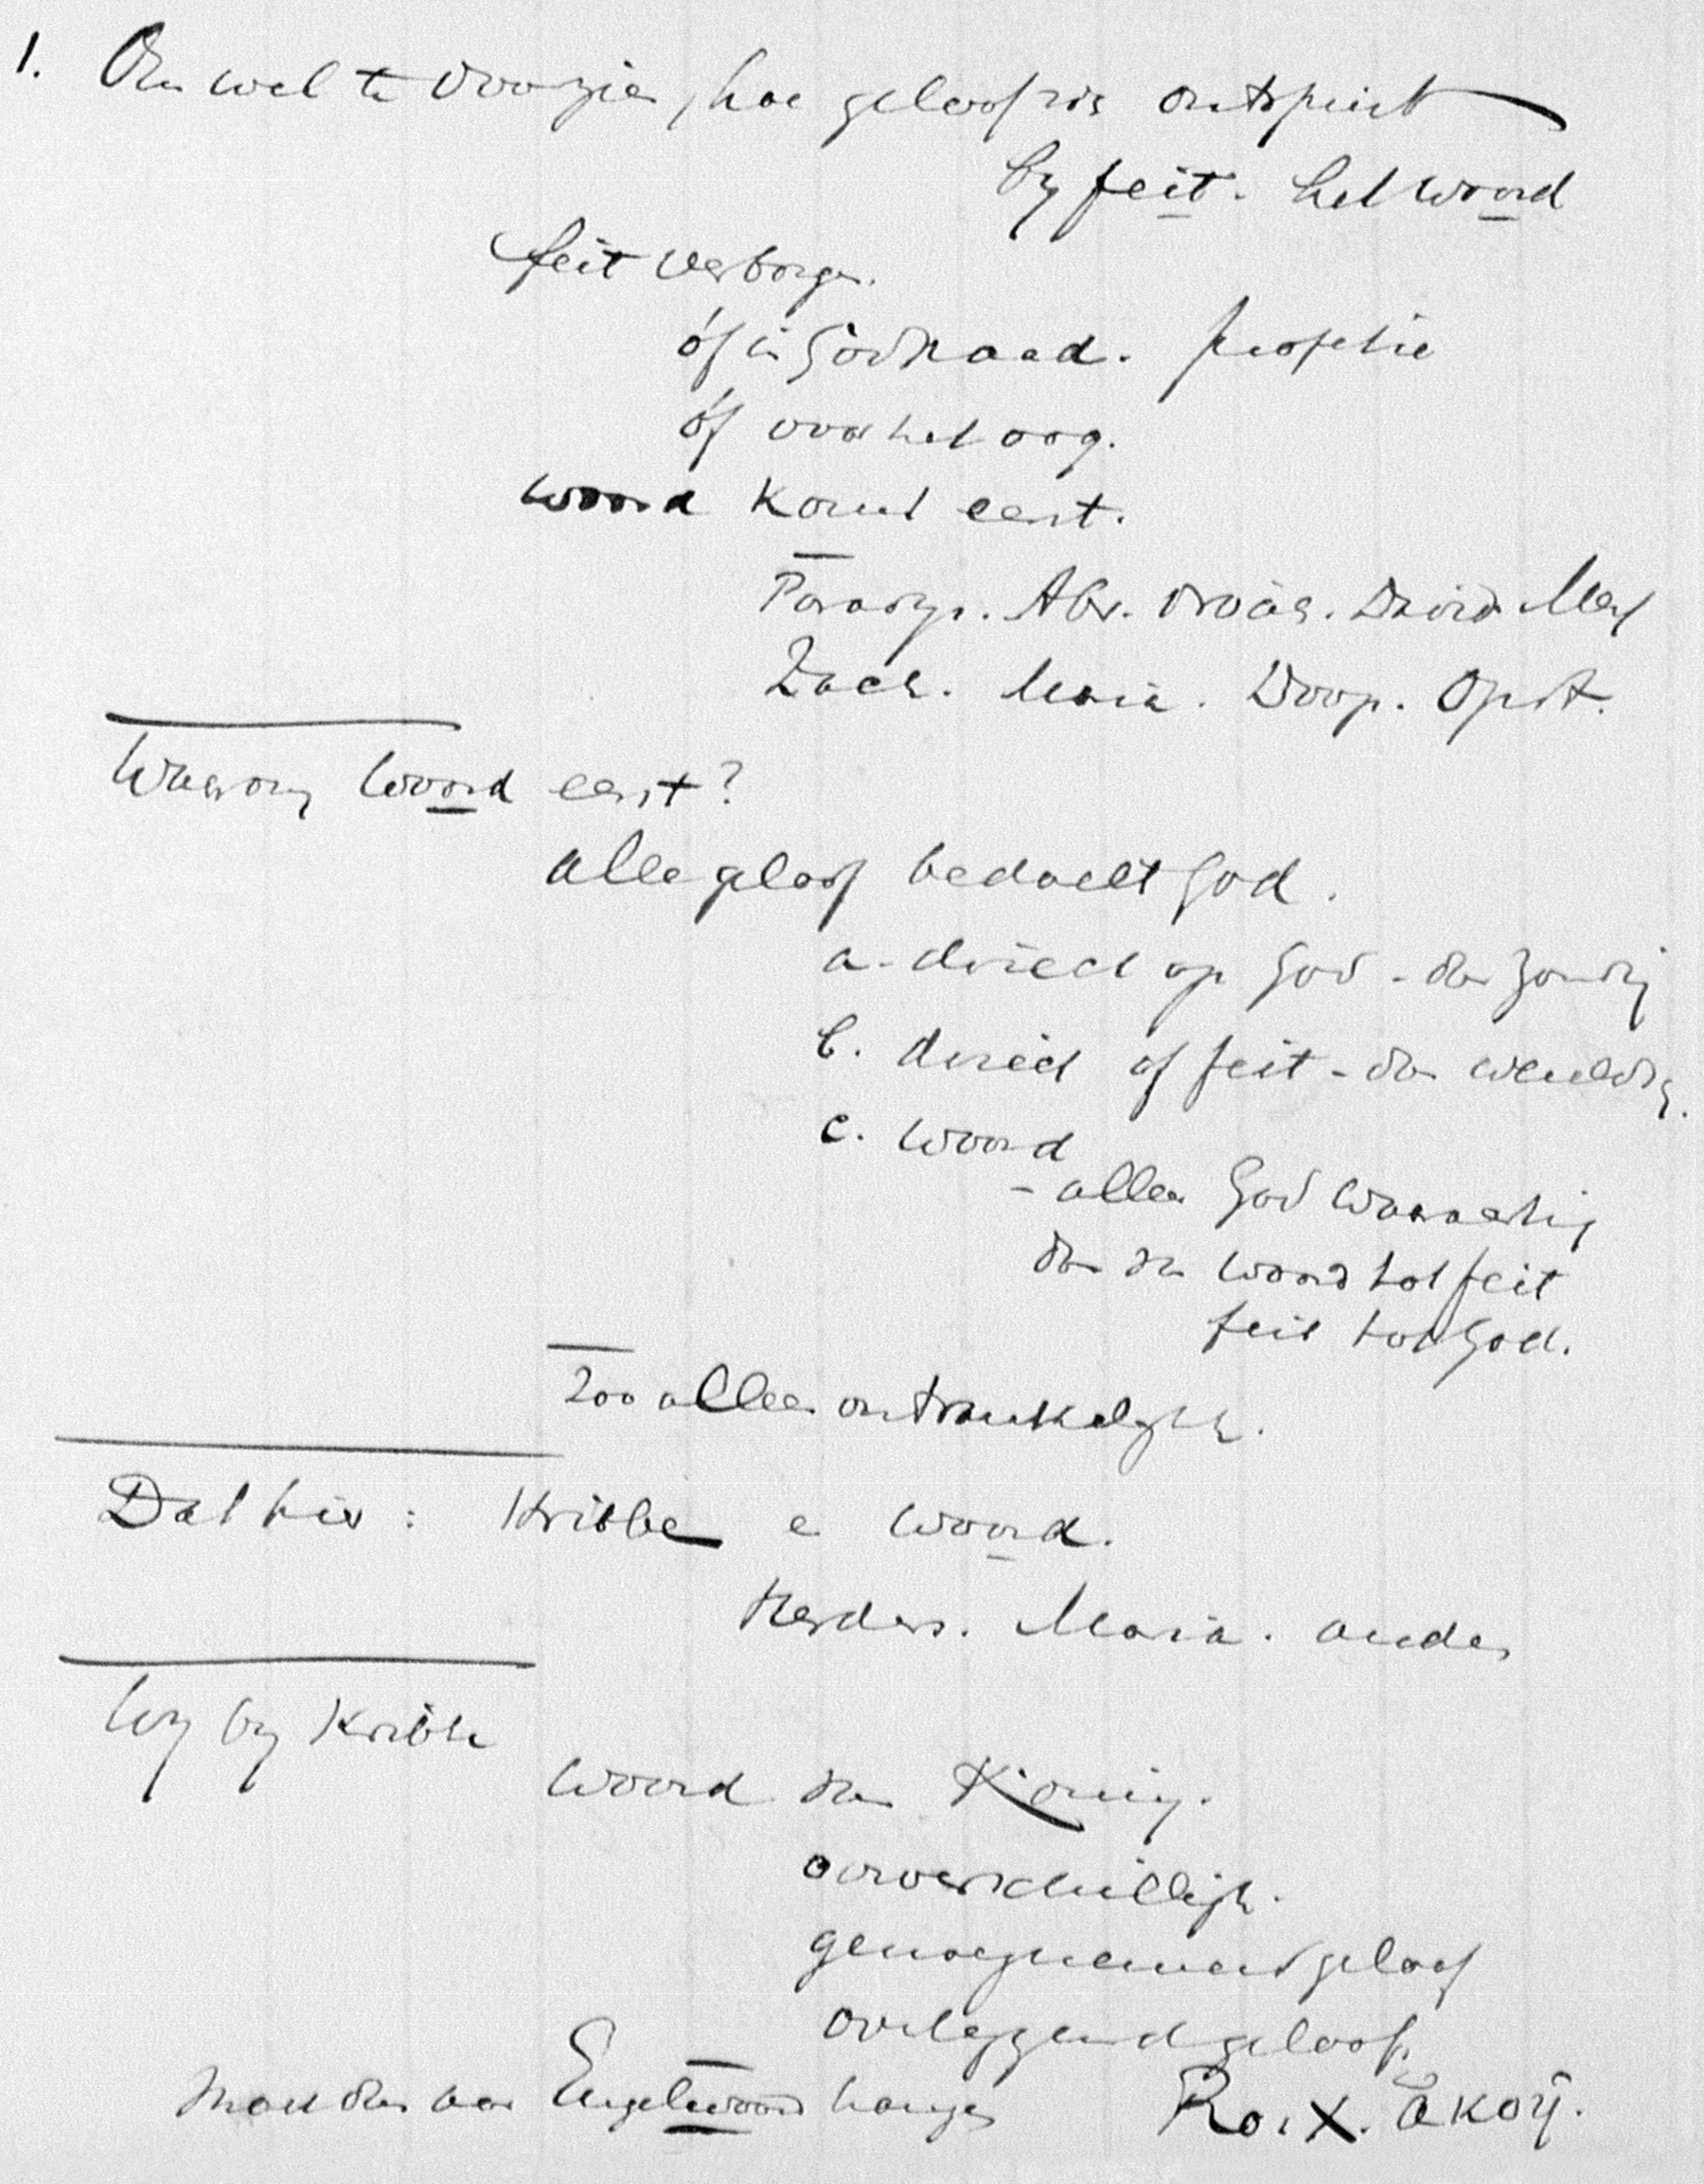 1. Om wel te doorzien, hoe geloof ons ontspruit
by feit. het woord
feit verborgen.
óf in Gods Raad. profetie
óf voor het oog.
woord komt eerst.
Paradijs. Abr. Mozes. David
Zach. Maria. Doop. Opst.
Waarom Woord eerst?
alle geloof bedoelt God.
a. direct op God - de
b. direct op feit - de
c. woord
- alleen God waarachtig
dan de woord tot feit
feit tot God.
Zoo alleen ontvankelijk.
Dat hier: Kribbe e woord.
Herders. Maria. anderen
Wy by Kribbe
woord den Koning.
onverschillig.
genoegnemend geloof
overleggend geloof
monden aan Engelenwoord hangen Ro. X. ἀκοή.